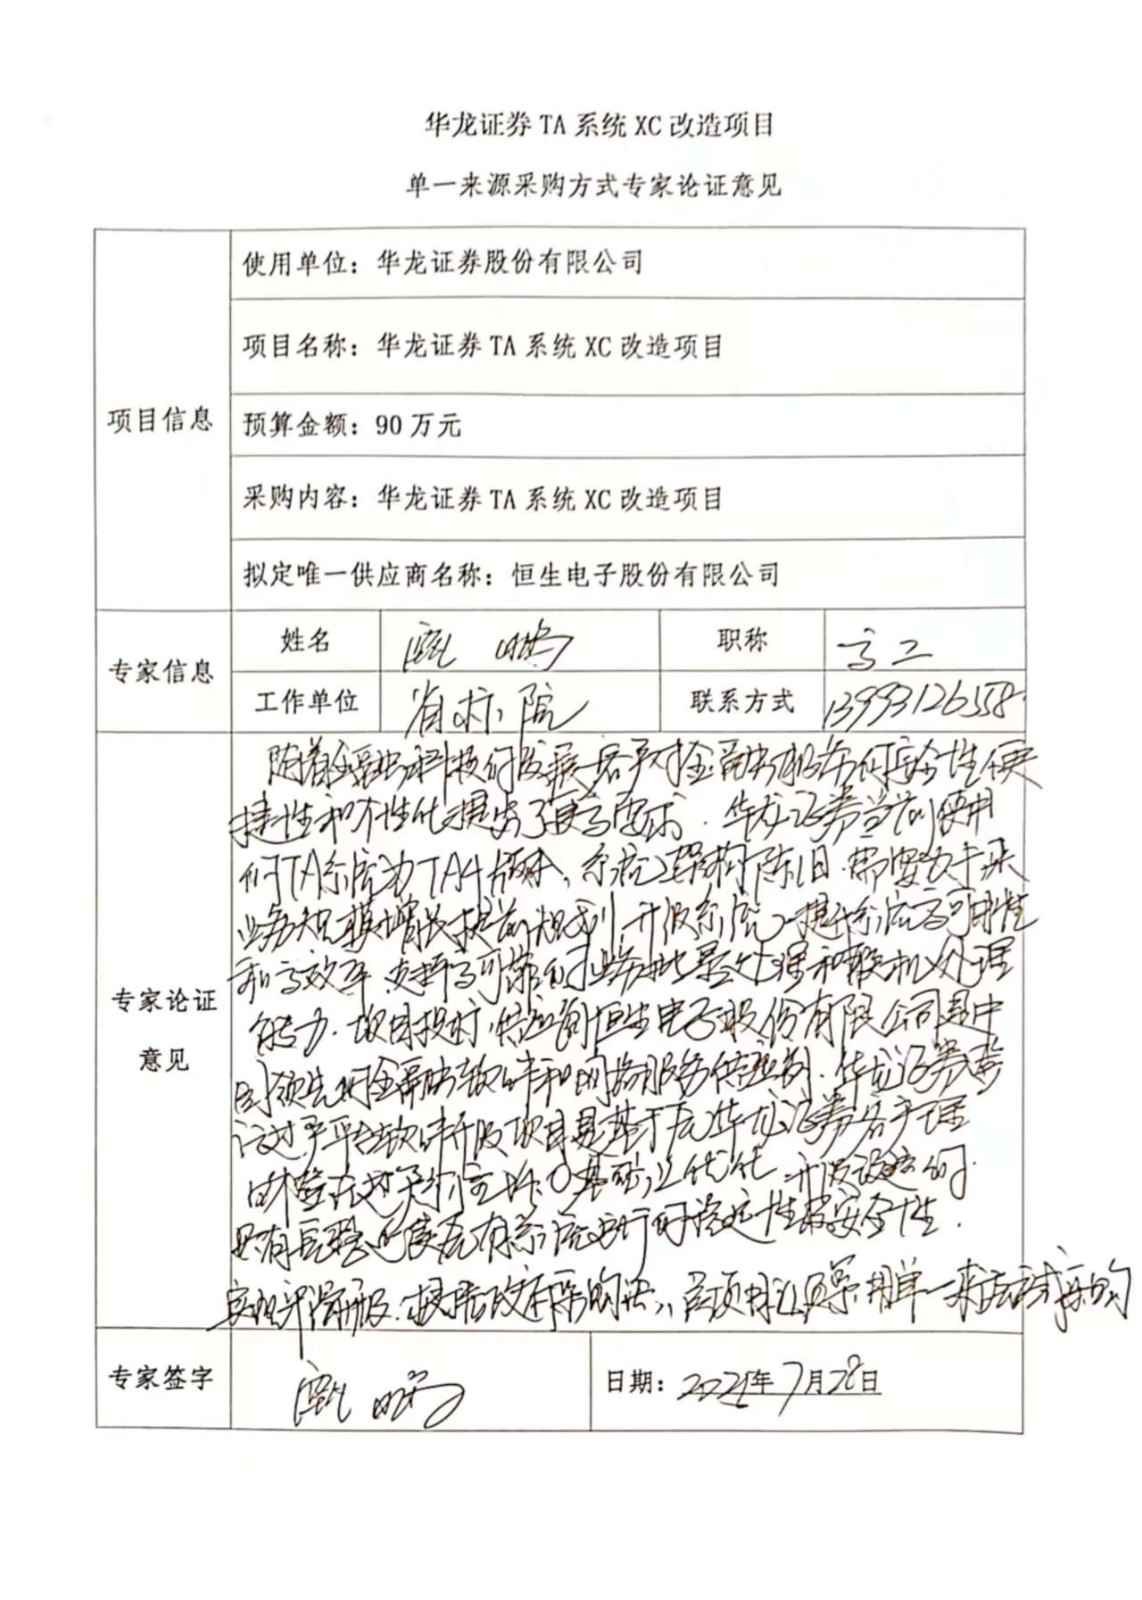 华龙证券 TA 系统 XC 改造项目
单一来源采购方式专家论证意见
项目信息
使用单位：华龙证券股份有限公司
项目名称：华龙证券 TA 系统 XC 改造项目
预算金额：90 万元
采购内容：华龙证券 TA 系统 XC 改造项目
拟定唯一供应商名称：恒生电子股份有限公司
专家信息
姓名
职称
高工
工作单位
联系方式
专家论证
意见
随着金融科技的发展 客户对金融机构的安全性便
捷性和个性化提出了更高要求．华龙证券当前使用
的TA系统为TA4版本，系统架构陈旧 需要为未来
业务规模增长提前规划 升级系统 提升系统高可用性
和高效率 支撑高可靠的业务批量处理和联机处理
能力．项目 供应商恒生电子股份有限公司是中
国领先的金融软件和网络服务供应商．华龙证券
平台软件开发项目是基于 华龙证券客户
基础上优化 开发 的
系统运行的稳定性和安全性．
实现平滑升级．根据政府采购法，该项目必须采用单一来源方式采购
专家签字
日期：7月28日